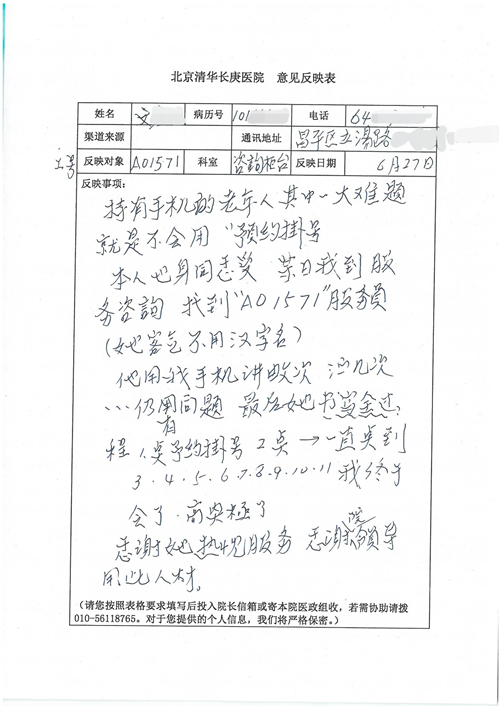 北京清华长庚医院 意见反映表
姓名 文 病历号 101 电话 64
渠道来源 通讯地址 昌平区立湯路
工号 反映对象 A01571 科室 咨詢柜台 反映日期 6月27日
反映事项:
持有手机的老年人其中一大难题
就是不会用"预约掛号
本人也身同感受 某日我到服
务咨詢 找到"A01571"服务員
(她客气不用汉字名)
他用我手机讲数次 试几次
…仍有同题 最后她书写全过
程 1.点予约掛号 2点→一直点到
3.4.5.6.7.8.9.10.11 我终于
会了.高兴極了
感谢她热忱服务 感谢院領导
用此人材。
(请您按照表格要求填写后投入院长信箱或寄本院医政组收,若需协助请拨
010-56118765。对于您提供的个人信息,我们将严格保密。)